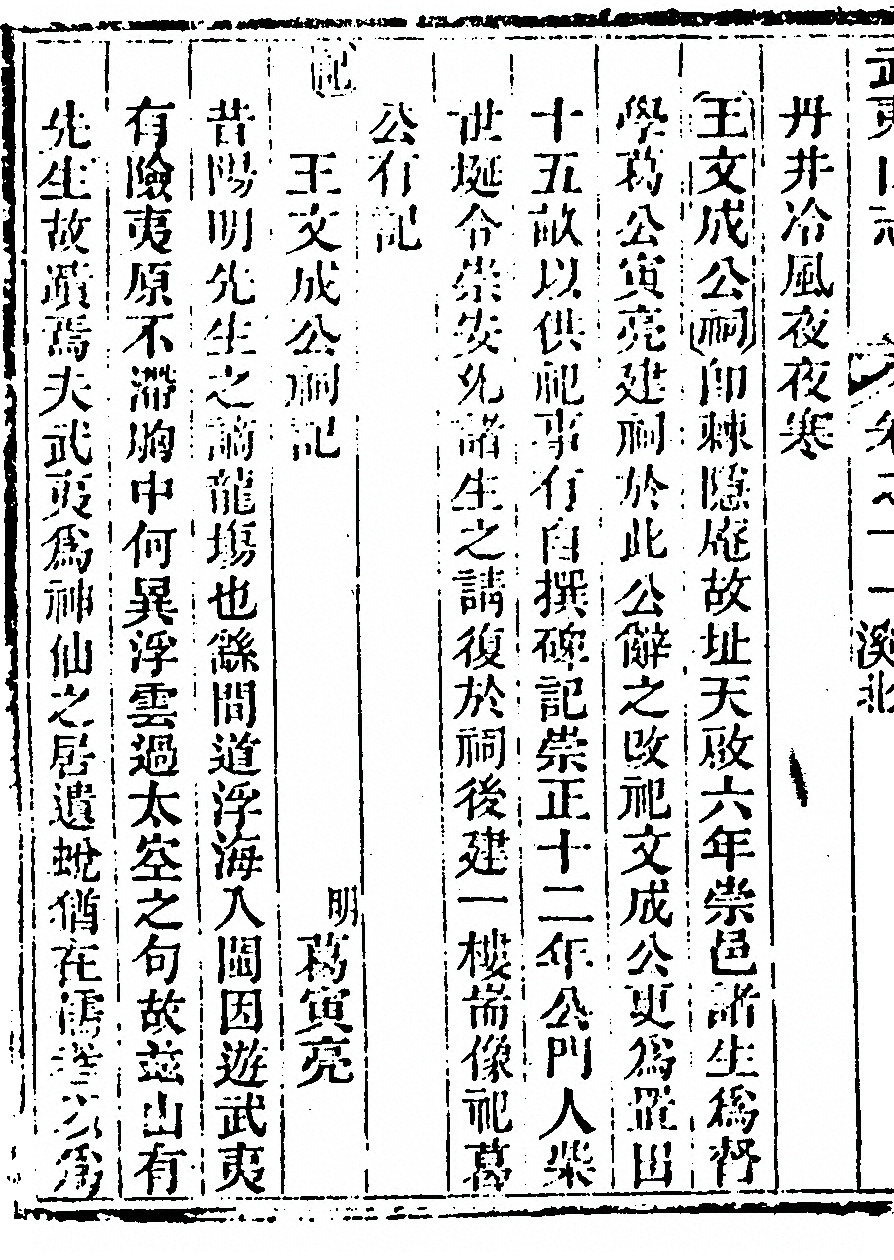 武夷山志 卷之十一 一溪北
丹井冷風夜夜寒
王文成公祠即棘隱庵故址天啟六年崇邑諸生為督
學葛公寅亮建祠於此公辭之改祀文成公更為置田
十五畝以供祀事有自撰碑記崇正十二年公門人柴
世埏令崇安允諸生之請復於祠後建一樓耑像祀葛
公有記
記
王文成公祠記
明葛寅亮
昔陽明先生之謫龍塲也繇間道浮海入閩因遊武夷
有險夷原不滯胸中何異浮雲過太空之句故茲山有
先生故蹟焉夫武夷為神仙之居遺蛻猶在儒者以為